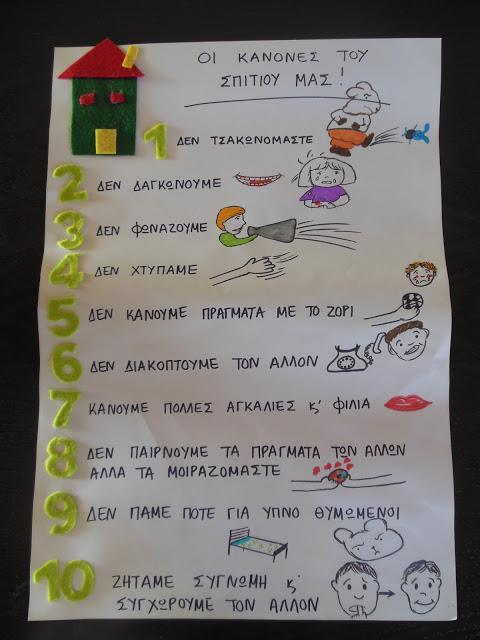 ΟΙ ΚΑΝΟΝΕΣ ΤΟΥ
ΣΠΙΤΙΟΥ ΜΑΣ!
1 ΔΕΝ ΤΣΑΚΩΝΟΜΑΣΤΕ
2 ΔΕΝ ΔΑΓΚΩΝΟΥΜΕ
3 ΔΕΝ ΦΩΝΑΖΟΥΜΕ
4 ΔΕΝ ΧΤΥΠΑΜΕ
5 ΔΕΝ ΚΑΝΟΥΜΕ ΠΡΑΓΜΑΤΑ ΜΕ ΤΟ ΖΟΡΙ
6 ΔΕΝ ΔΙΑΚΟΠΤΟΥΜΕ ΤΟΝ ΑΛΛΟΝ
7 ΚΑΝΟΥΜΕ ΠΟΛΛΕΣ ΑΓΚΑΛΙΕΣ κ' ΦΙΛΙΑ
8 ΔΕΝ ΠΑΙΡΝΟΥΜΕ ΤΑ ΠΡΑΓΜΑΤΑ ΤΩΝ ΑΛΛΩΝ
ΑΛΛΑ ΤΑ ΜΟΙΡΑΖΟΜΑΣΤΕ
9 ΔΕΝ ΠΑΜΕ ΠΟΤΕ ΓΙΑ ΥΠΝΟ ΘΥΜΩΜΕΝΟΙ
10 ΖΗΤΑΜΕ ΣΥΓΝΩΜΗ κ'
ΣΥΓΧΩΡΟΥΜΕ ΤΟΝ ΑΛΛΟΝ